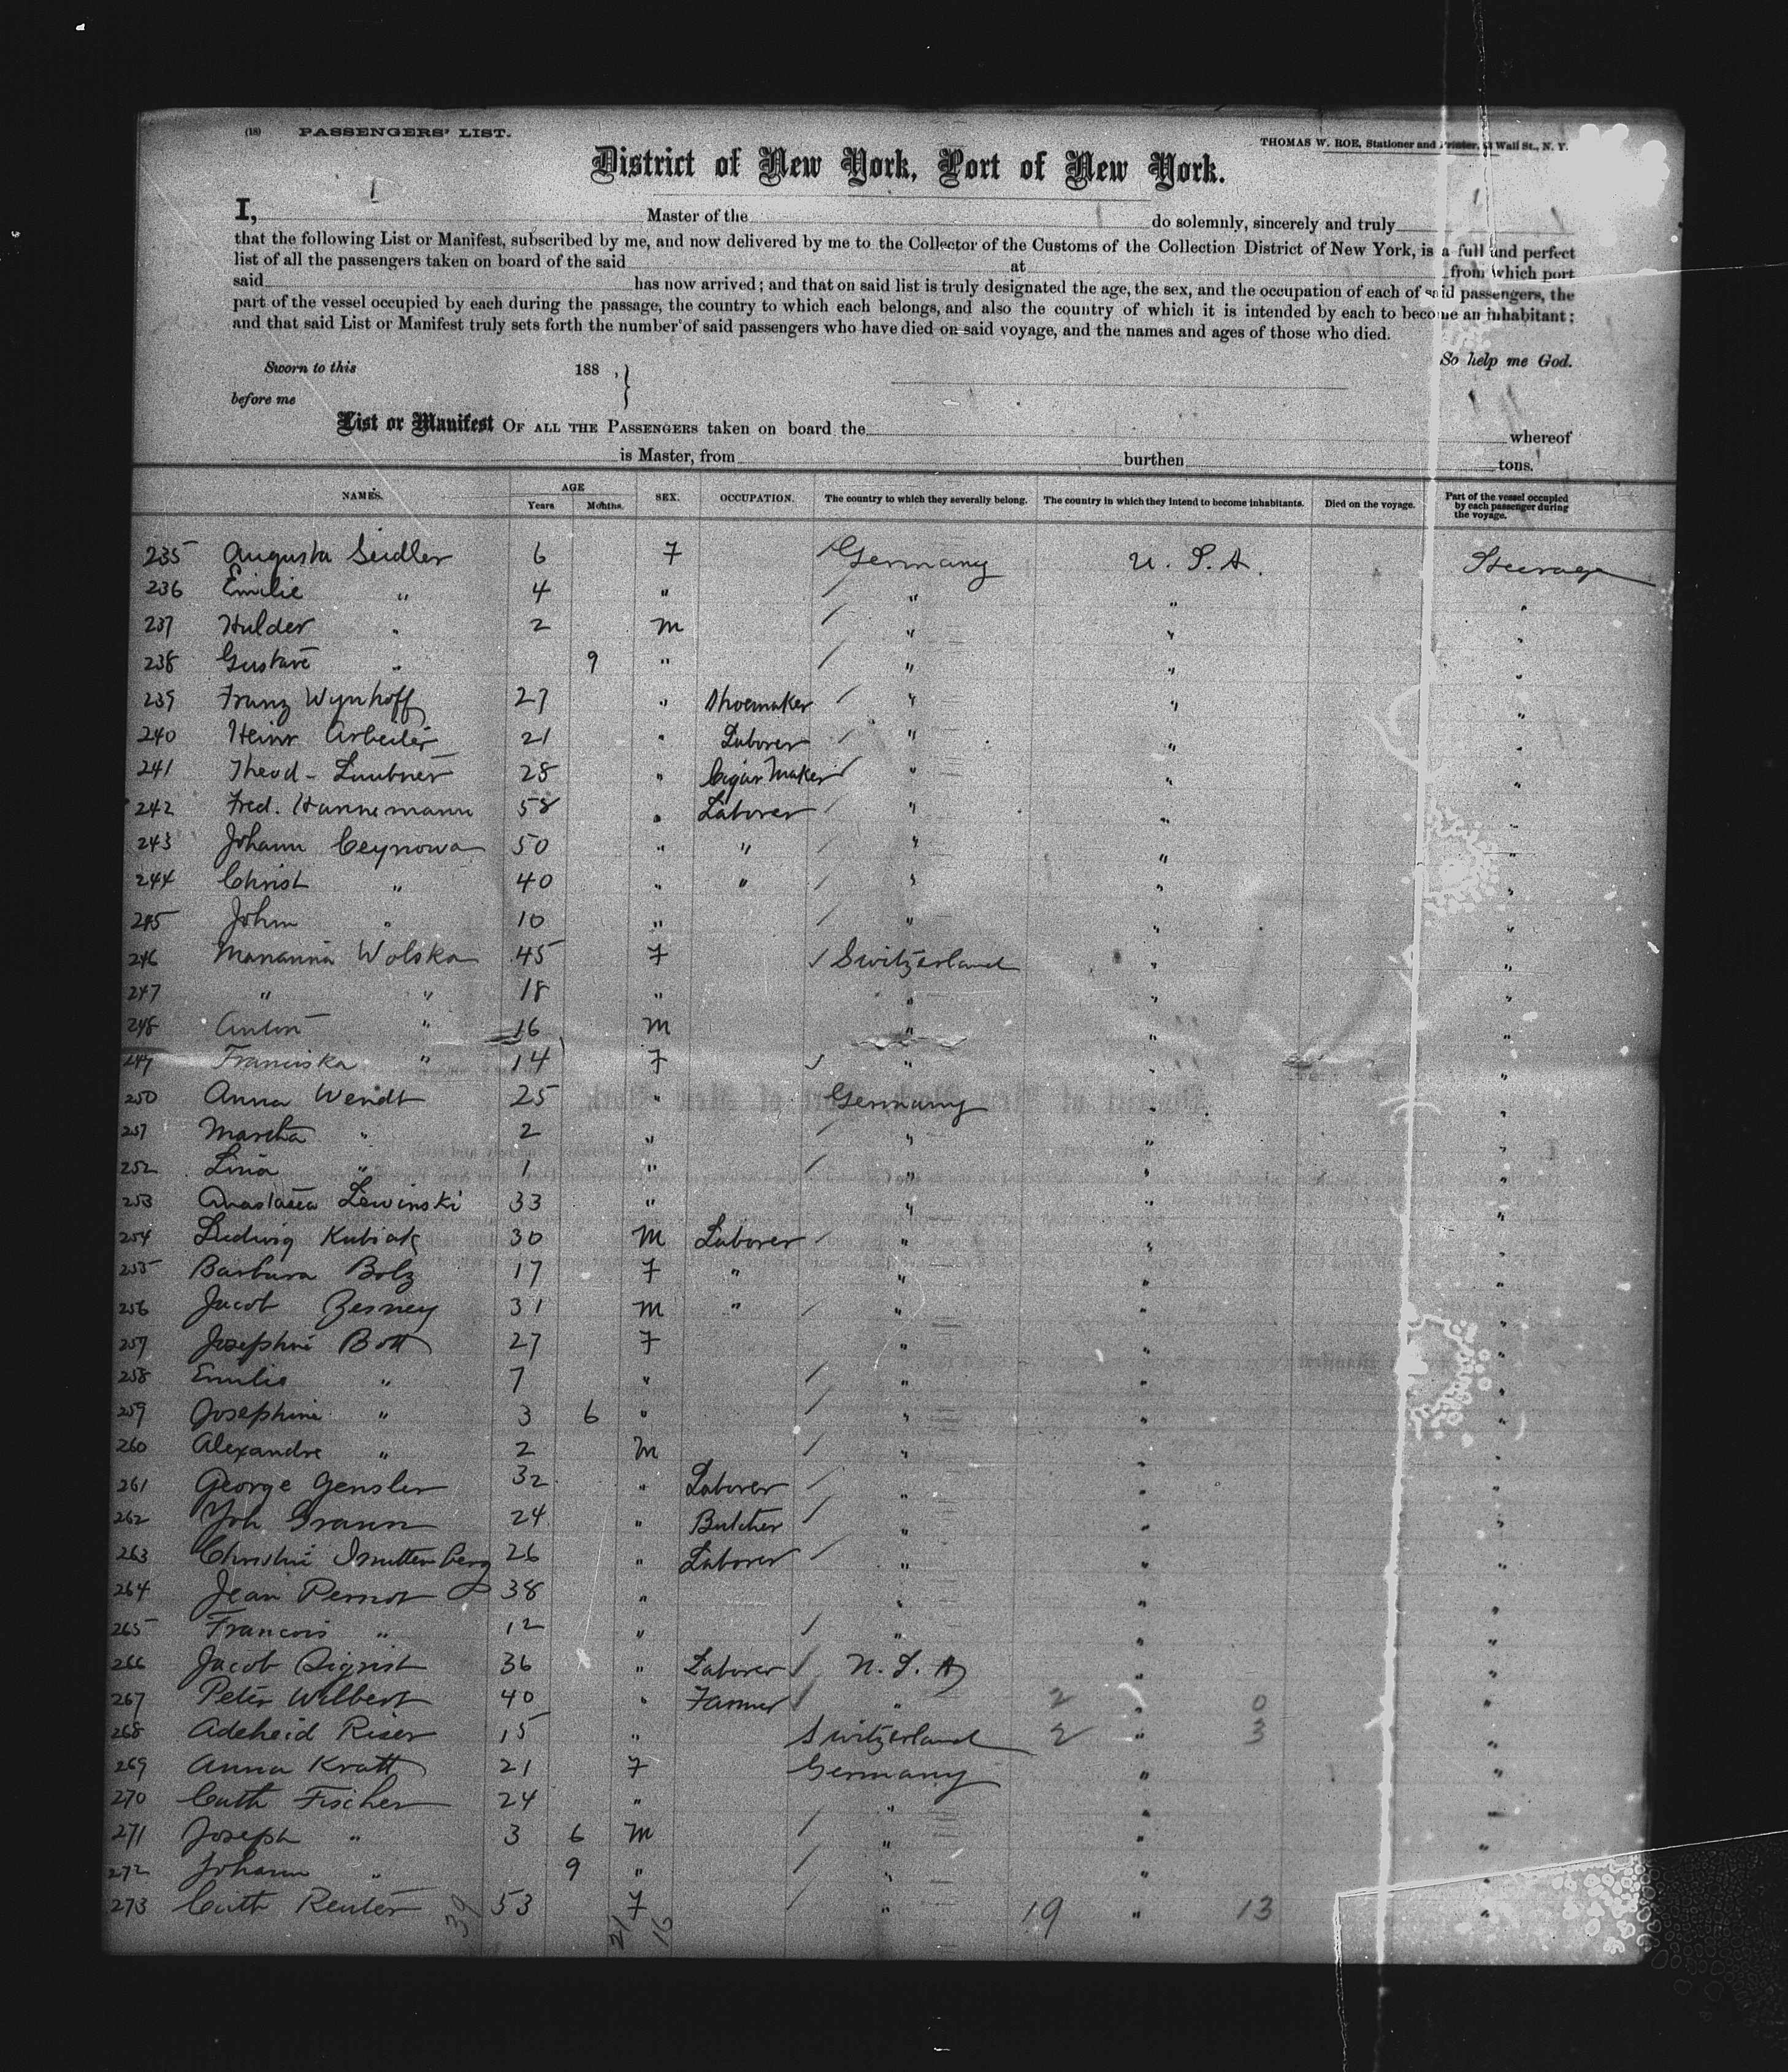 (18) PASSENGERS' LIST.
THOMAS W. ROE, Stationer and Printer, Wall St., N. Y.
District of New York, Port of New York.
I, Master of the do solemnly, sincerely and truly
that the following List or Manifest, subscribed by me, and now delivered by me to the Collector of the Customs of the Collection District of New York, is a full and perfect
list of all the passengers taken on board of the said at from which port
said has now arrived; and that on said list is truly designated the age, the sex, and the occupation of each of said passengers, the
part of the vessel occupied by each during the passage, the country to which each belongs, and also the country of which it is intended by each to become an inhabitant;
and that said List or Manifest truly sets forth the number of said passengers who have died on said voyage, and the names and ages of those who died.
So help me God.
Sworn to this 188 ,
before me
List or Manifest OF ALL THE PASSENGERS taken on board the whereof
is Master, from burthen tons.
NAMES. AGE Years Months. SEX. OCCUPATION. The country to which they severally belong. The country in which they intend to become inhabitants. Died on the voyage. Part of the vessel occupied by each passenger during the voyage.
235 Augusta Seidler 6 F / Germany U. S. A. Steerage
236 Emilie " 4 " / " " "
237 Hulder " 2 M / " " "
238 Gustave " 9 " / " " "
239 Franz Wynhoff 27 " Shoemaker / " " "
240 Heinr Arbeiter 21 " Laborer / " " "
241 Theod - Laubner 28 " Cigar Maker / " " "
242 Fred. Hannemann 58 " Laborer / " " "
243 Johann Ceynowa 50 " " / " " "
244 Christ " 40 " " / " " "
245 John " 10 " / " " "
246 Marianna Wolska 45 F / Switzerland " "
247 " " 18 " " " "
248 Anton " 16 M " " "
249 Franciska " 14 F / " " "
250 Anna Wendt 25 " Germany " "
251 Martha " 2 " / " " "
252 Lina " 1 " / " " "
253 Anastasia Lewinski 33 " " " "
254 Ludwig Kubiak 30 M Laborer / " " "
255 Barbara Bolz 17 F " " " "
256 Jacob Zerney 31 M " / " " "
257 Josephine Bott 27 F " " "
258 Emilie " 7 " / " " "
259 Josephine " 3 6 " / " " "
260 Alexandre " 2 M / " " "
261 George Gensler 32 " Laborer / " " "
262 Joh Braun 24 " Butcher / " " "
263 Christine 26 " Laborer / " " "
264 Jean Pernot 38 " " " "
265 Francois " 12 " / " " "
266 Jacob Sigrist 36 " Laborer / U. S. A " "
267 Peter Wilbert 40 " Farmer / " 2 0 "
268 Adelheid Riser 15 " Switzerland 2 " 3 "
269 Anna Kratt 21 F Germany " "
270 Cath Fischer 24 " " " "
271 Joseph " 3 6 M / " " "
272 Johann " 9 " / " " "
273 Cath Reuter 53 F / " 19 " 13 "
39 21 16